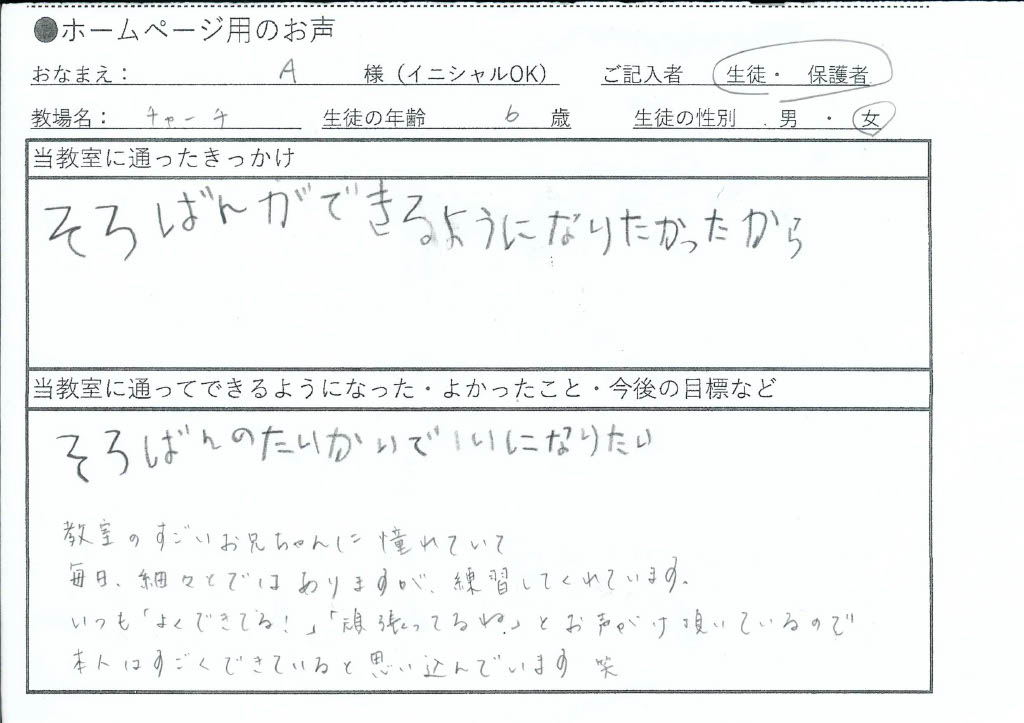 ●ホームページ用のお声
おなまえ： A 様（イニシャルOK） ご記入者 生徒・ 保護者
教場名： チャーチ 生徒の年齢 6 歳 生徒の性別 男 ・ 女
当教室に通ったきっかけ
そろばんができるようになりたかったから
当教室に通ってできるようになった・よかったこと・今後の目標など
そろばんのたいかいで1いになりたい
教室のすごいお兄ちゃんに憧れていて
毎日、細々とではありますが、練習してくれています。
いつも「よくできてる！」「頑張ってるね」とお声がけ頂いているので
本人はすごくできていると思い込んでいます 笑